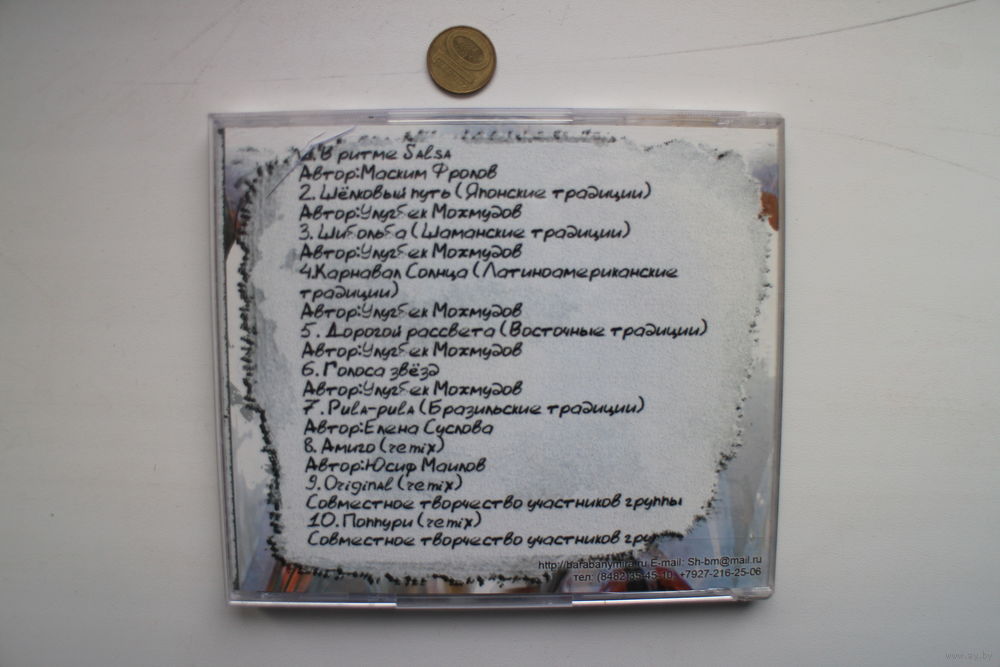 10
1. В ритме Salsa
Автор:Маским Фролов
2. Шёлковый путь (Японские традиции)
Автор:Улугбек Мохмудов
3. Шибольба (Шаманские традиции)
Автор:Улугбек Мохмудов
4.Карнавал Солнца (Латиноамериканские
традиции)
Автор:Улугбек Мохмудов
5. Дорогой рассвета (Восточные традиции)
Автор:Улугбек Мохмудов
6. Голоса звёзд
Автор:Улугбек Мохмудов
7. Pula-pula (Бразильские традиции)
Автор:Елена Суслова
8. Амиго (remix)
Автор:Юсиф Маилов
9. Original (remix)
Совместное творчество участников группы
10. Поппури (remix)
Совместное творчество участников
http://barabanymira.ru E-mail: Sh-bm@mail.ru
тел: (8482)35-45-10, +7927-216-25-06
www.ay.by